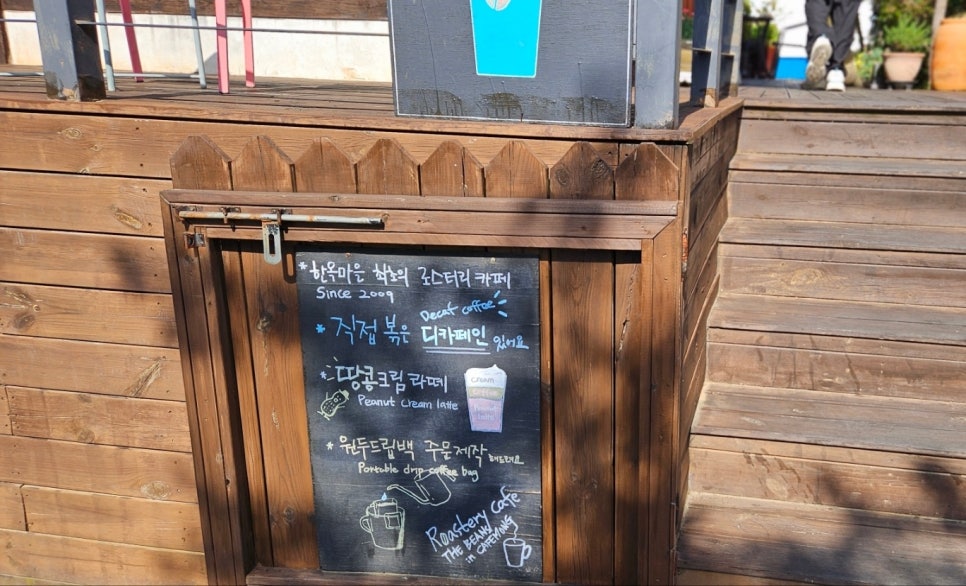 * 한옥마을 최초의 로스터리 카페
Since 2009
Decaf coffee
* 직접 볶은 디카페인 있어요
* 땅콩크림라떼
Peanut cream latte
cream
* 원두드립백 주문제작 해드려요
Portable drip coffee bag
Roastery cafe
THE BEANS
in CAFEMONG